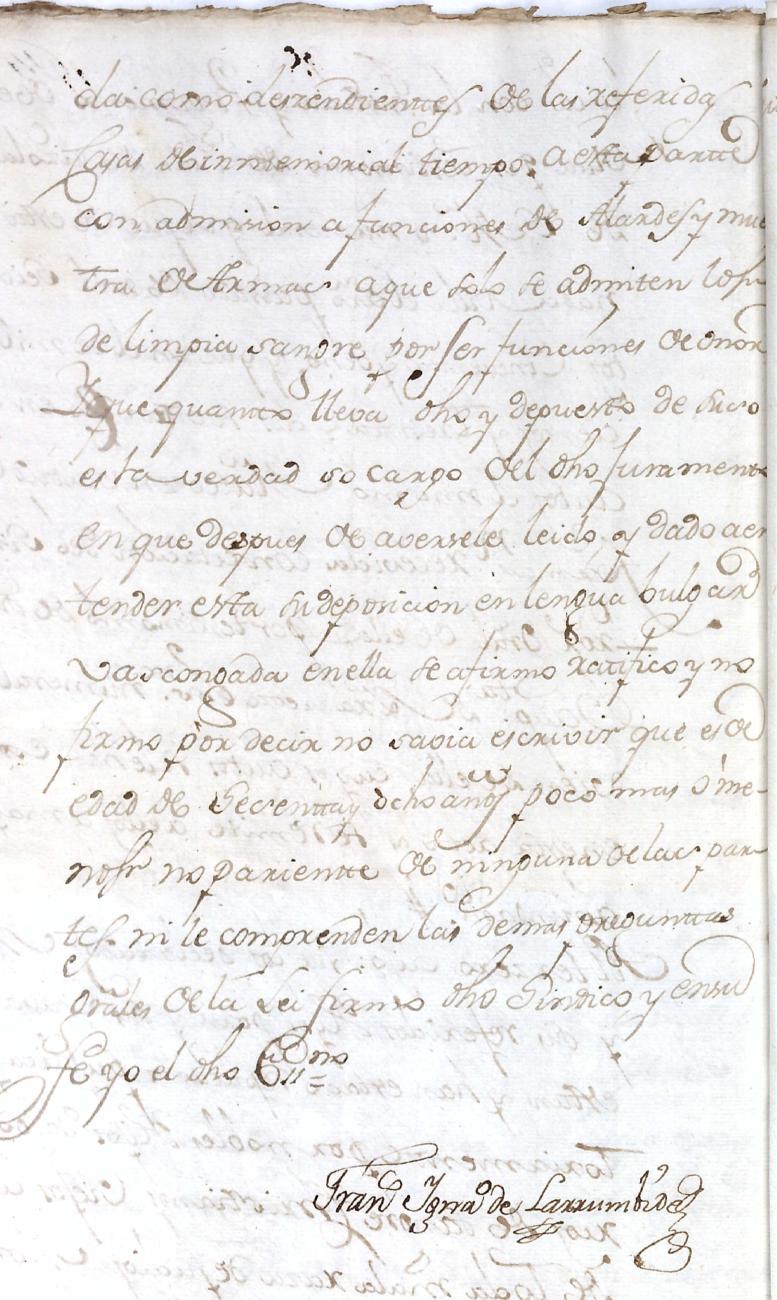 da como deszendienttes de las referidas
Casas de inmemorial tiempo, a esta partte
con admision a funciones de Alardes y mues
tra de Armas a que solo se admiten los
de limpia sangre por ser funciones de onor
Y que quantto lleva dho y depuesto de suso
es la verdad so cargo del dho juramento
en que despues de aversele leido, y dado a en
tender esta su deposicion en lengua bulgar
vascongada en ella se afirmo ratifico y no
firmo por decir no savia escrivir que es de
edad de Sesentta y ocho años poco mas o me-
nos no pariente de ninguna de las par-
tes ni le comprenden las demas preguntas
grales de la Lei firmo dho Sindico y en su
fe yo el dho essno
Frano Ignao de Larrumbide